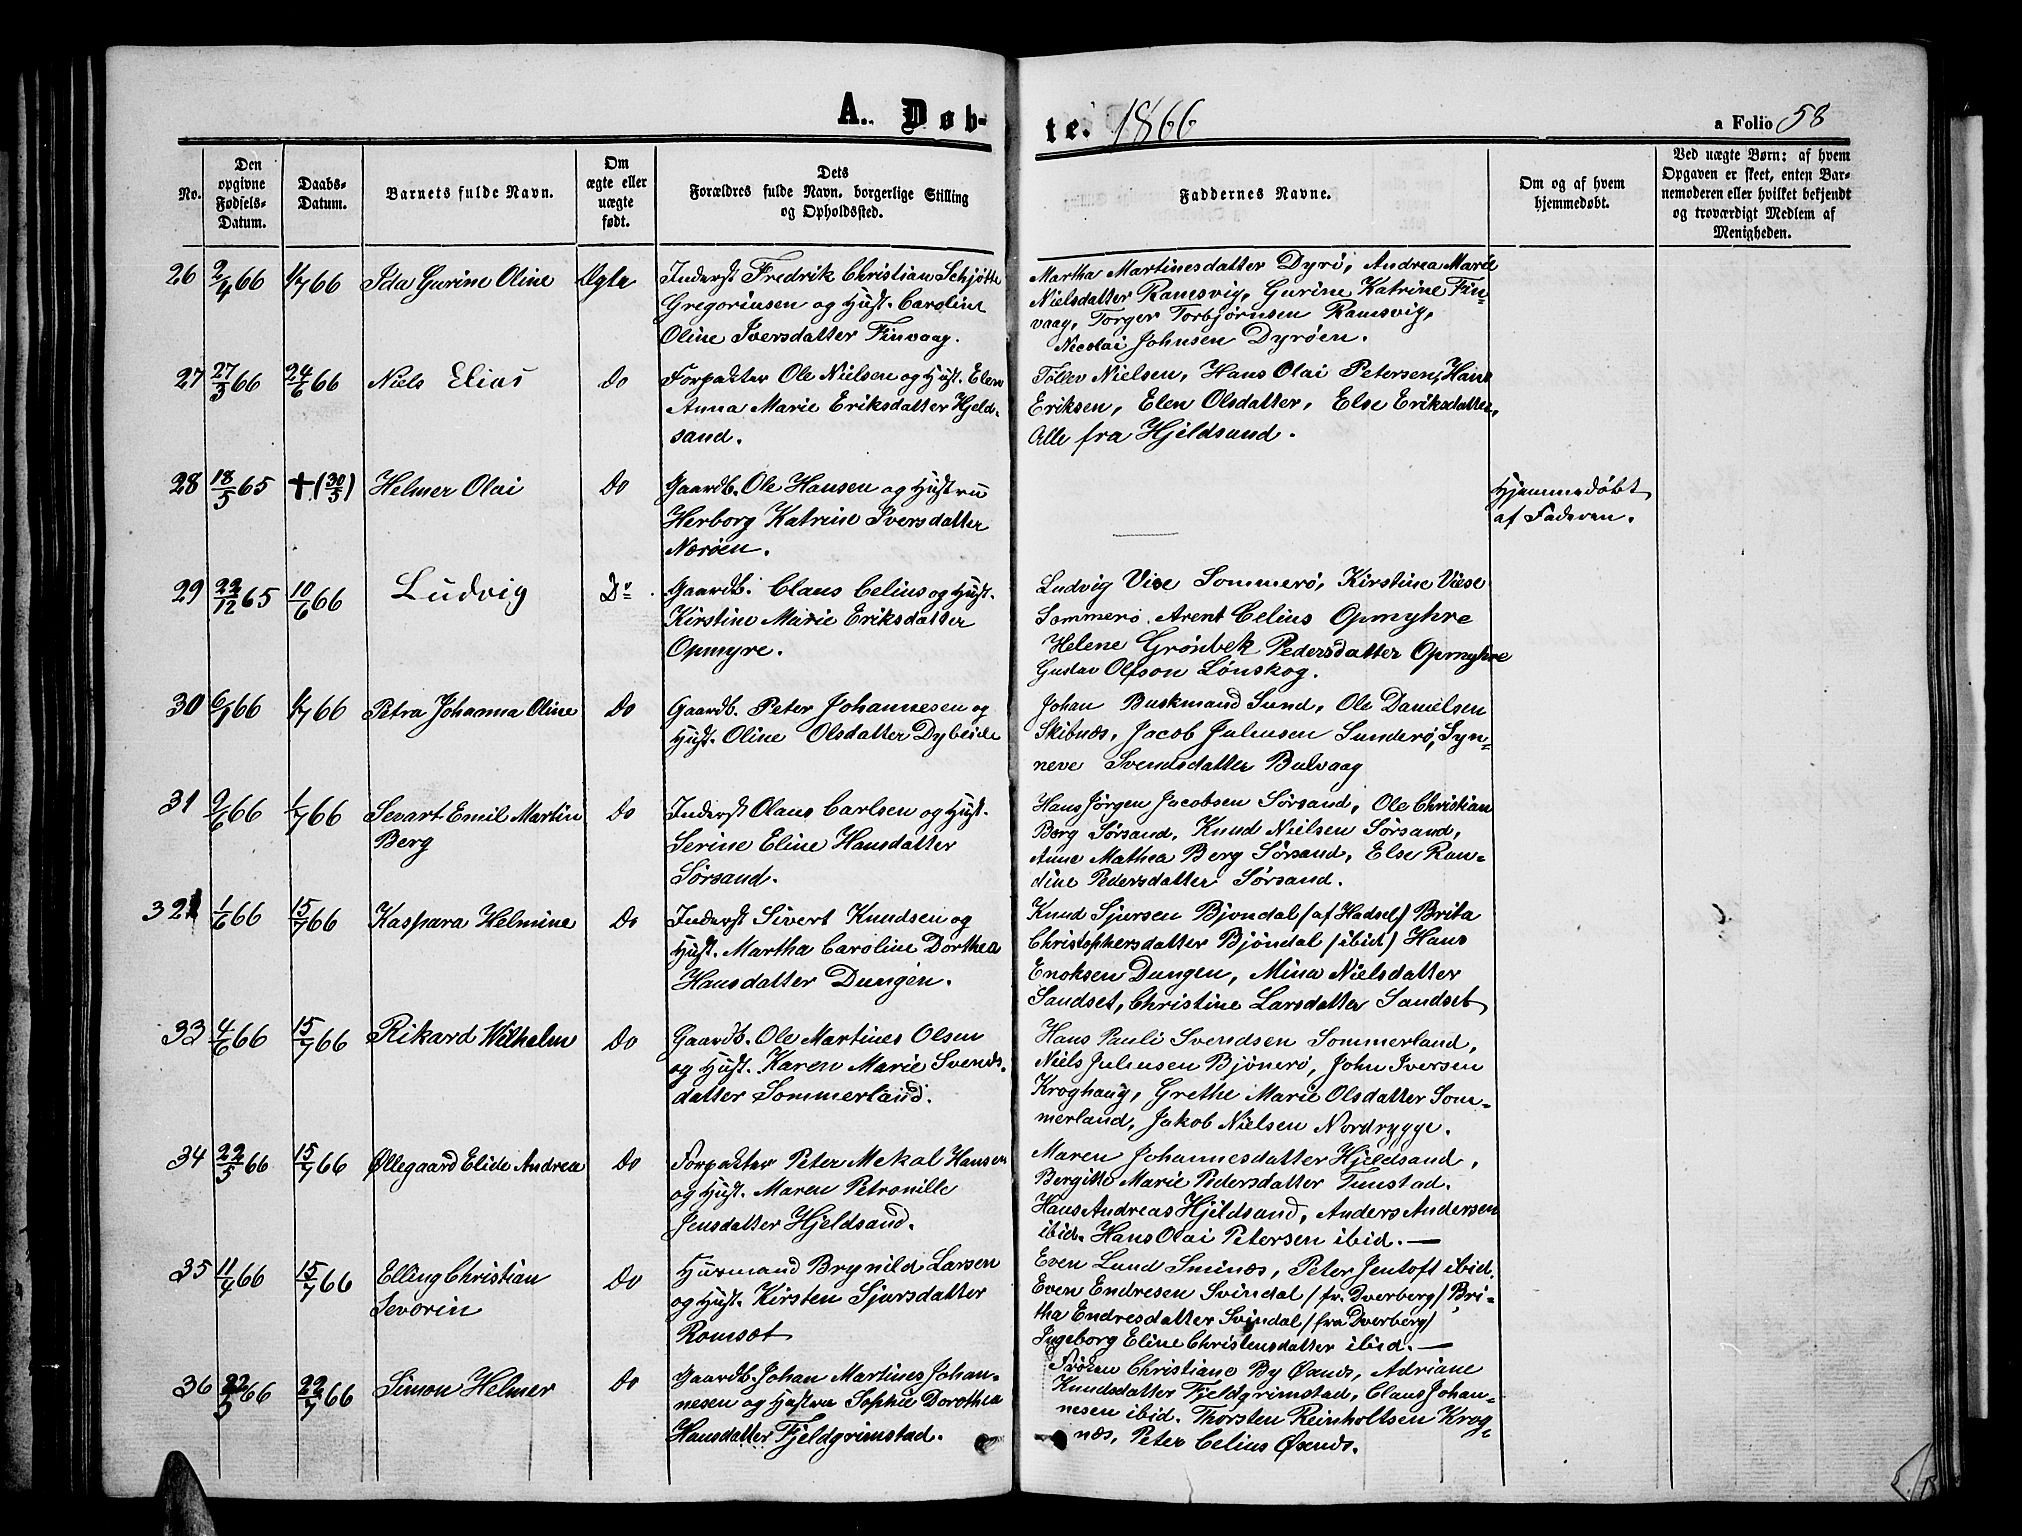 A. Døb-
te. 1866
a Folio 58
No.
Den opgivne Fødsels-Datum.
Daabs-Datum.
Barnets fulde Navn.
Om ægte eller uægte født.
Dets Forældres fulde Navn, borgerlige Stilling og Opholdssted.
Faddernes Navne.
Om og af hvem hjemmedøbt.
Ved uægte Børn: af hvem Opgaven er skeet, enten Barnemoderen eller hvilket bekjendt og troværdigt Medlem af Menigheden.
26 2/4 66 1/7 66 Ida Gurine Oline Ægte
Inderst Fredrik Christian Schjøtte
Gregoriusen og Hust. Caroline
Oline Iversdatter Finvaag.
Martha Martinesdatter Dyrö, Andrea Marie
Nielsdatter Ramsvig, Gurine Katrine Fin-
vaag, Torger Torbjörnsen Ramsvig,
Nicolai Johnsen Dyröen.
27 27/3 66 24/6 66 Niels Elias Do
Forpakter Ole Nielsen og Hust. Elen
Anna Marie Eriksdatter Hjeld-
sand.
Tollev Nielsen, Hans Olai Petersen, Hans
Eriksen, Elen Olsdatter, Else Eriksdatter,
Alle fra Hjeldsand.
28 18/5 65 † (30/5) Helmer Olai Do
Gaardb. Ole Hansen og Hustru
Herborg Katrine Iversdatter
Næröen.
Hjemmedøbt
af Faderen.
29 22/12 65 10/6 66 Ludvig Do
Gaardb. Claus Celius og Hust.
Kirstine Marie Eriksdatter
Opmyre.
Ludvig Vise Sommerö, Kirstine Viese
Sommerö, Arent Celius Opmyhre
Helene Grönbek Pedersdatter Opmyhre
Gustav Olfson Lönskog.
30 6/1 66 1/7 66 Petra Johanna Oline Do
Gaardb. Peter Johannesen og
Hust. Oline Olsdatter Dybeide
Johan Buskmand Sund, Ole Danielsen
Skibnæs, Jacob Juliusen Sunderö, Syn-
neve Svendsdatter Bulvaag
31 9/6 66 1/7 66 Sevart Emil Martin Do
Berg
Inderst Olaus Carlsen og Hust.
Serine Eline Hansdatter
Sörsand.
Hans Jörgen Jacobsen Sörsand, Ole Christian
Berg Sörsand, Knud Nielsen Sörsand,
Anne Mathea Berg Sörsand, Else Ran-
dine Pedersdatter Sörsand.
32 1/6 66 15/7 66 Kaspara Helmine Do
Inderst Sivert Knudsen og
Hust. Martha Caroline Dorthea
Hansdatter Dungen.
Knud Sjursen Bjondal /af Hadsel/ Brita
Christophersdatter Bjöndal /ibid/ Hans
Enoksen Dungen, Mina Nielsdatter
Sandset, Christine Larsdatter Sandset
33 4/6 66 15/7 66 Rikard Wilhelm Do
Gaardb. Ole Martines Olsen
og Hust. Karen Marie Svends-
datter Sommerland.
Hans Pauli Svendsen Sommerland,
Niels Juliusen Bjönerö, John Iversen
Kroghaug, Grethe Marie Olsdatter Som-
merland, Jakob Nielsen Nordrygge.
34 22/5 66 15/7 66 Øllegaard Elide Andrea Do
Forpakter Peter Mekal Hansen
og Hust. Maren Petronille
Jensdatter Hjeldsand.
Maren Johannesdatter Hjeldsand,
Bergitte Marie Pedersdatter Tunstad.
Hans Andreas Hjeldsand, Anders Andersen
ibid. Hans Olai Petersen ibid. —
35 11/4 66 15/7 66 Elling Christian Do
Severin
Husmand Brynild Larsen
og Hust. Kirsten Sjursdatter
Romsæt
Even Lund Smines, Peter Jentoft ibid.
Even Endresen Svindal /fr. Dverberg/ Bri-
tha Endresdatter Svindal /fra Dverberg/
Ingeborg Eline Christensdatter ibid. —
36 22/5 66 22/7 66 Simon Helmer Do
Gaardb. Johan Martines Johan-
nesen og Hustru Sophie Dorothea
Hansdatter Fjeldgrimstad.
Fröken Christiane By Øxnæs, Adriane
Knudsdatter Fjeldgrimstad, Claus Johan-
nesen ibid. Thorsten Reinholtsen Krog-
næs, Peter Celius Øxnæs.